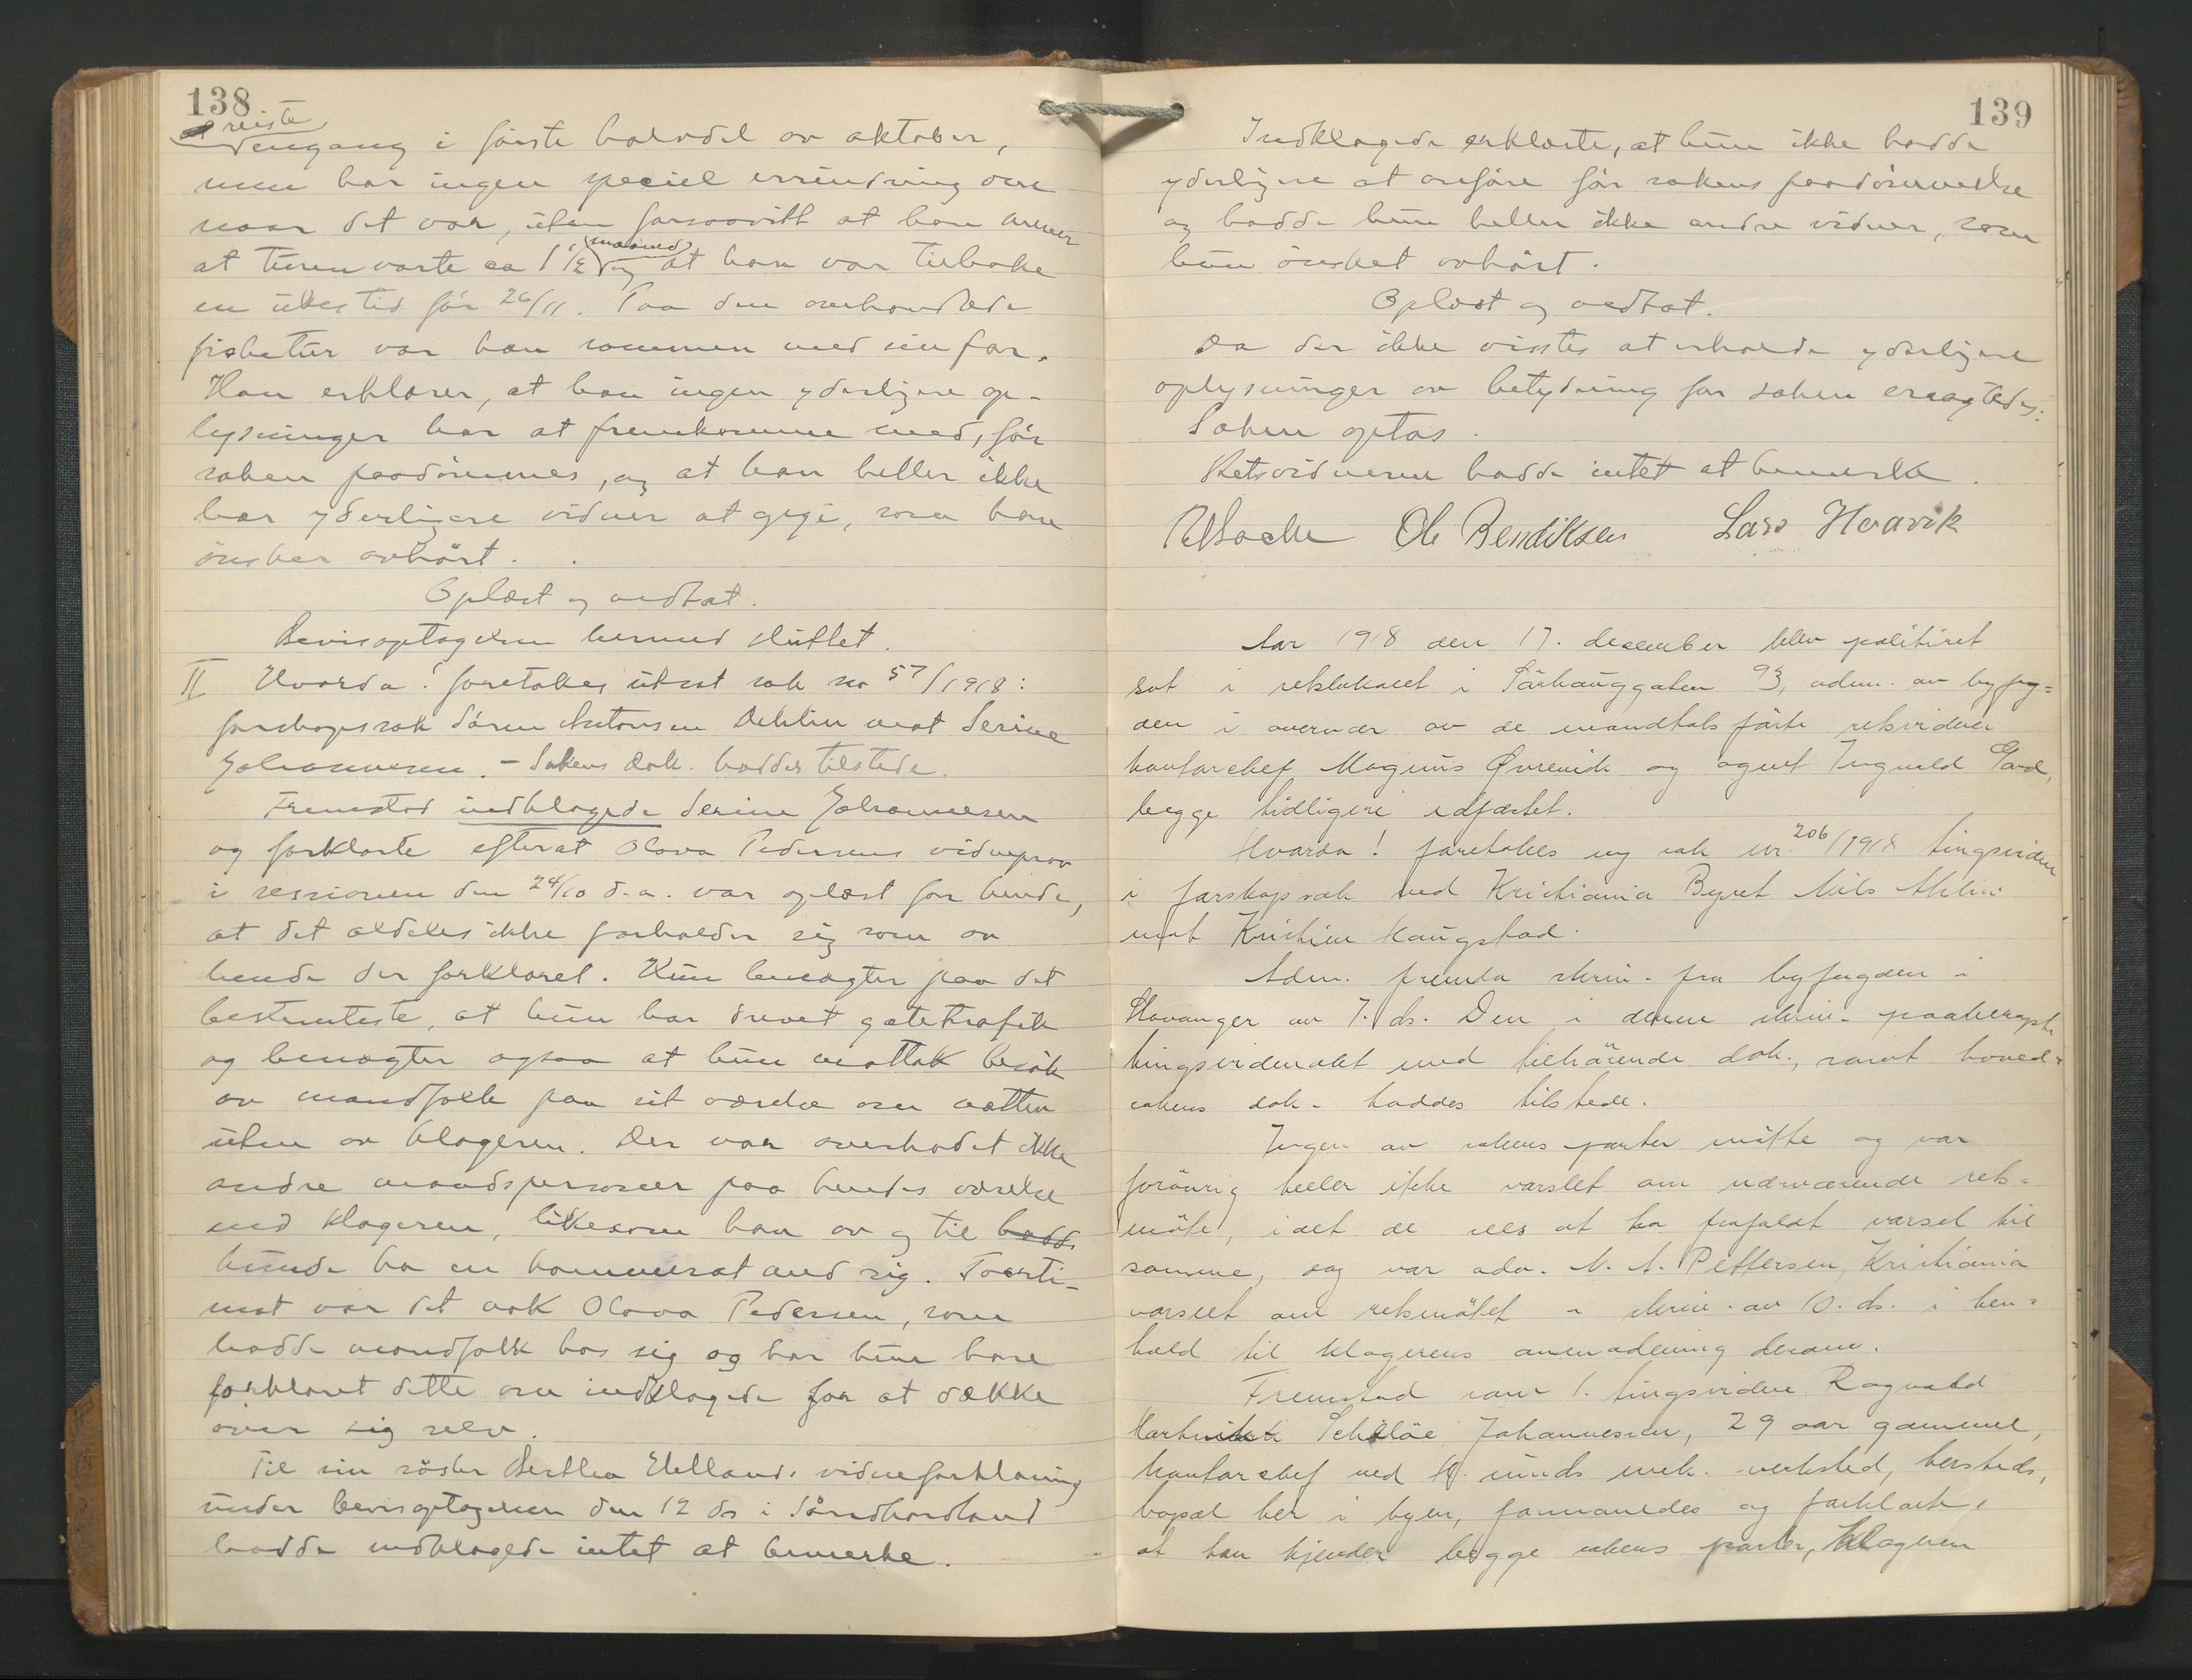 138
reiste
dengang i første halvdel av oktober,
men har ingen speciel erindring om
naar det var, uten forsaavitt at han mener
at turen varte ca 1 1/2 maaned og at han var tilbake
en ukes tid før 26/11. Paa den omhandlede
fisketur var han sammen med sin far.
Han erklærer, at han ingen yderligere op-
lysninger har at fremkomme med, før
saken paadømmes, og at han heller ikke
har yderligere vidner at opgi, som han
ønsker avhørt.
Oplæst og vedtat.
Bevisoptagelsen hermed sluttet.
II Hvorda! foretokes utsat sak no 57/1918:
farskapssak Søren Antonsen Dehlin mot Serine
Johannesen. - Sakens dok. haddes tilstede.
Fremstod indklagede Serine Johannesen
og forklarte efterat Olava Pedersens vidneprov
i sessionen den 24/10 d.a. var oplæst for hende,
at det aldeles ikke forholder sig som av
hende der forklaret. Hun benegter paa det
bestemteste, at hun har drevet gatetrafik
og benegter ogsaa at hun mottok besøk
av mandfolk paa sit værelse om natten
uten av klageren. Der var overhodet ikke
andre mandspersoner paa hendes værelse
end klageren, likesom han av og til hadde
kunde ha en kammerat med sig. Tverti-
mot var det nok Olava Pedersen, som
hadde mandfolk hos sig og har hun bare
forklaret dette om indklagede for at dække
over sig selv.
Til sin søster Berthea Helland's vidneforklaring
under bevisoptagelsen den 12 ds i Søndhordland
hadde indklagede intet at bemerke.
139
Indklagede erklærte, at hun ikke hadde
yderligere at anføre før sakens paadømmelse
og hadde hun heller ikke andre vidner, som
hun ønsket avhørt.
Oplæst og vedtat.
Da der ikke visstes at erholde yderligere
oplysninger av betydning for saken eragtedes:
Saken optas.
Retsvidnerne hadde intet at bemerke.
Ole Bendiksen Lars Hvavik
Aar 1918 den 17. december blev politiret
sat i retslokalet i Sørhauggaten 93, adm. av byfog-
den i overvær av de mandtals førte retsvidner
kontorchef Magnus Øvrevik og agent Ingvald
begge tidligere edfæstet.
Hvorda! foretokes ny sak nr 206/1918 tingsvidne
i farskapssak ved Kristiania Byret Nils
mot Kristian Haugstad.
Adm. fremla skriv. fra byfogden i
Stavanger av 7. ds. Den i denne skriv. paaberopte
tingsvidneakt med tilhørende dok., samt hoved-
sakens dok. haddes tilstede.
Ingen av sakens parter møtte og var
forøvrig heller ikke varslet om nærværende rets-
møte, idet de sees at ha frafaldt varsel til
samme, og var adv. N. A. Pettersen, Kristiania
varslet om retsmøtet i skriv. av 10. ds. i hen-
hold til klagerens anmodning derom.
Fremstod som 1. tingsvidne Ragnvald
Johannessen, 29 aar gammel,
kontorchef ved H. unds mek. verksted, hersteds,
bopæl her i byen, formanedes og forklarte,
at han kjender begge sakens parter, klageren